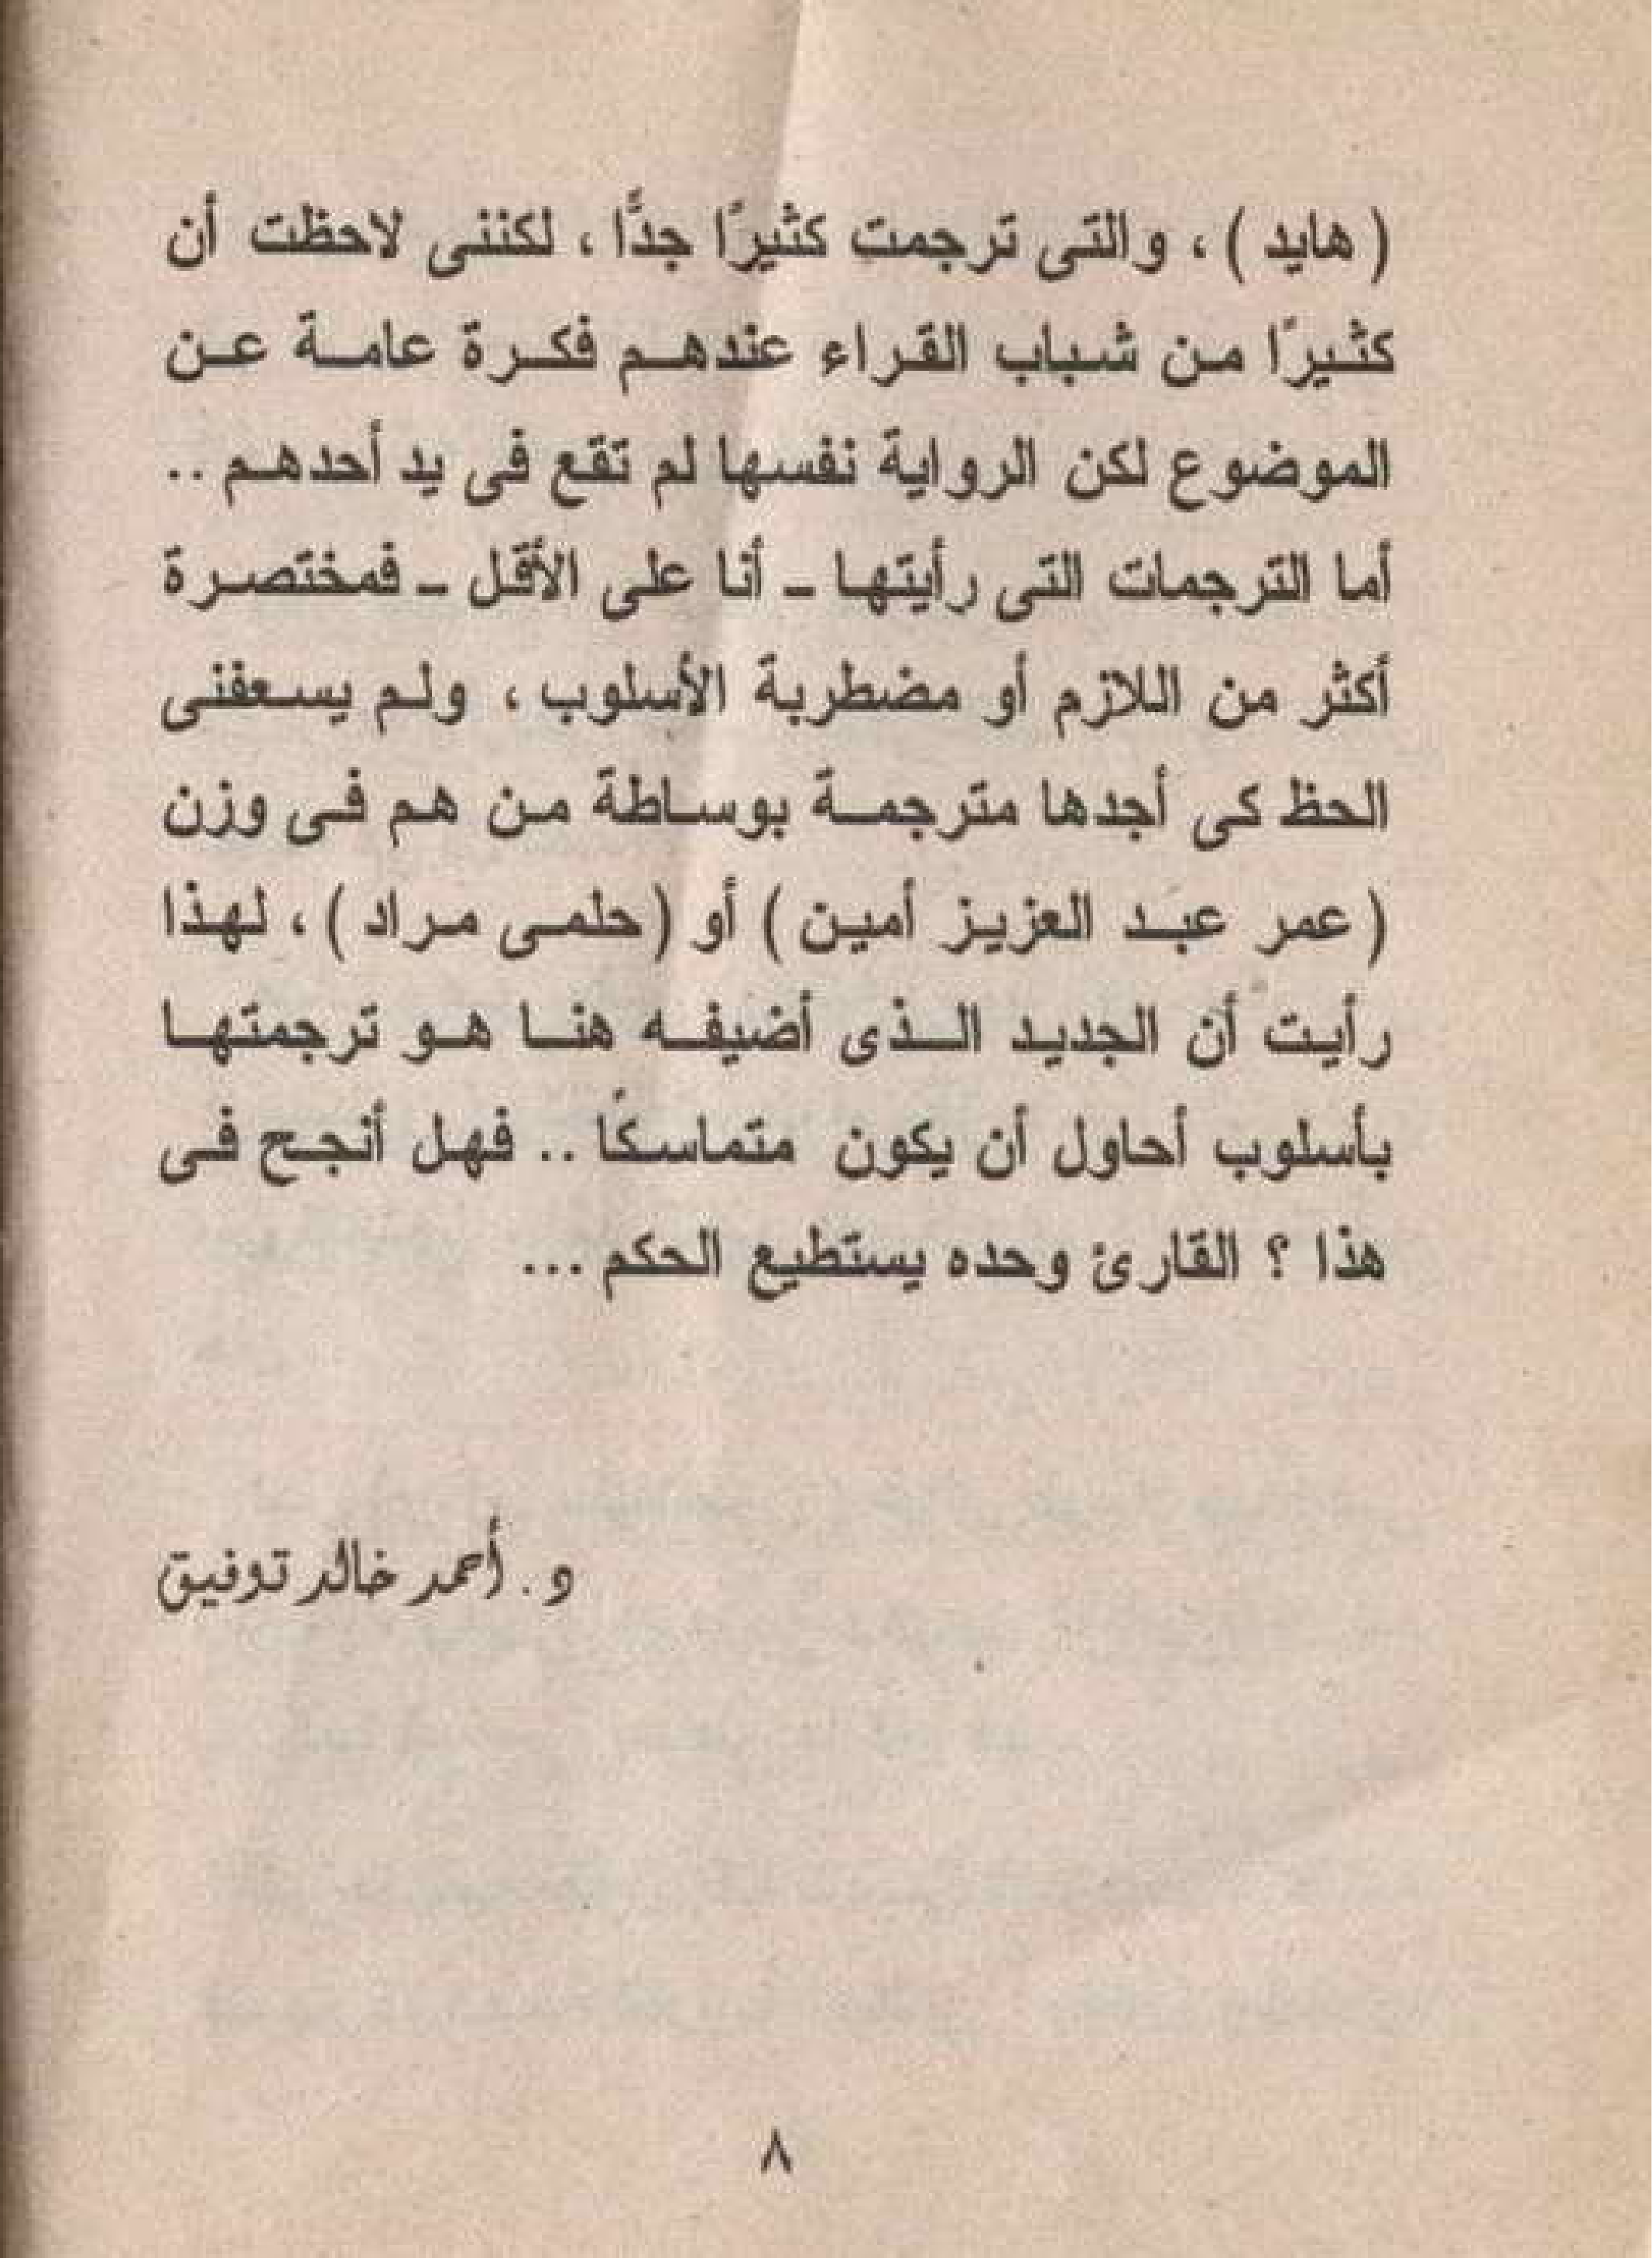 ( هايد ) ، والتى ترجمت كثيرًا جدًّا ، لكننى لاحظت أن
كثيرًا من شباب القراء عندهم فكرة عامة عن
الموضوع لكن الرواية نفسها لم تقع فى يد أحدهم ..
أما الترجمات التى رأيتها ـ أنا على الأقل ـ فمختصرة
أكثر من اللازم أو مضطربة الأسلوب ، ولم يسعفنى
الحظ كى أجدها مترجمة بوساطة من هم فى وزن
( عمر عبد العزيز أمين ) أو ( حلمى مراد ) ، لهذا
رأيت أن الجديد الذى أضيفه هنا هو ترجمتها
بأسلوب أحاول أن يكون متماسكًا .. فهل أنجح فى
هذا ؟ القارئ وحده يستطيع الحكم ...
د . أحمد خالد توفيق
٨